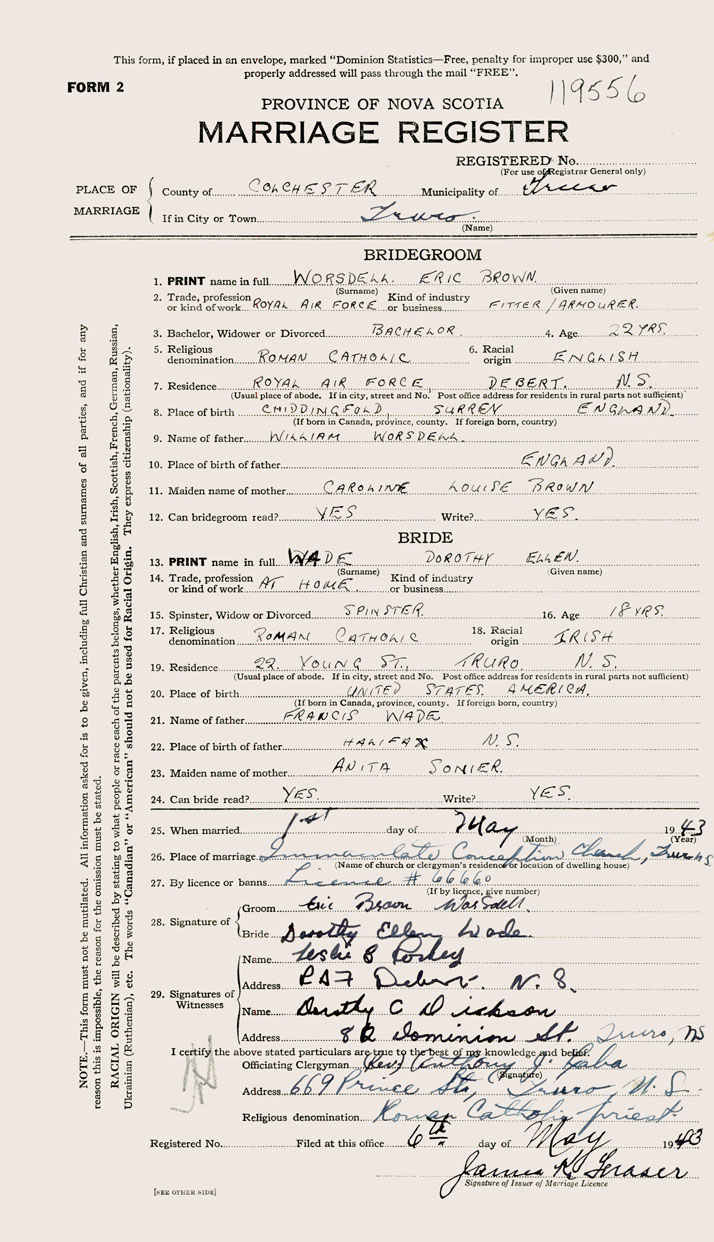 This form, if placed in an envelope, marked "Dominion Statistics—Free, penalty for improper use $300," and
properly addressed will pass through the mail "FREE".
FORM 2
119556
PROVINCE OF NOVA SCOTIA
MARRIAGE REGISTER
REGISTERED No.
(For use of Registrar General only)
PLACE OF MARRIAGE
County of COLCHESTER Municipality of Truro
If in City or Town Truro.
(Name)
BRIDEGROOM
1. PRINT name in full WORSDELL. ERIC BROWN.
(Surname) (Given name)
2. Trade, profession or kind of work ROYAL AIR FORCE Kind of industry or business FITTER / ARMOURER.
3. Bachelor, Widower or Divorced BACHELOR. 4. Age 22 YRS.
5. Religious denomination ROMAN CATHOLIC 6. Racial origin ENGLISH
7. Residence ROYAL AIR FORCE, DEBERT. N.S.
(Usual place of abode. If in city, street and No. Post office address for residents in rural parts not sufficient)
8. Place of birth CHIDDINGFOLD, SURREY ENGLAND.
(If born in Canada, province, county. If foreign born, country)
9. Name of father WILLIAM WORSDELL.
10. Place of birth of father ENGLAND.
11. Maiden name of mother CAROLINE LOUISE BROWN
12. Can bridegroom read? YES Write? YES.
BRIDE
13. PRINT name in full WADE DOROTHY ELLEN.
(Surname) (Given name)
14. Trade, profession or kind of work AT HOME. Kind of industry or business
15. Spinster, Widow or Divorced SPINSTER. 16. Age 18 YRS.
17. Religious denomination ROMAN CATHOLIC 18. Racial origin IRISH
19. Residence 22. YOUNG ST., TRURO. N.S.
(Usual place of abode. If in city, street and No. Post office address for residents in rural parts not sufficient)
20. Place of birth UNITED STATES AMERICA.
(If born in Canada, province, county. If foreign born, country)
21. Name of father FRANCIS WADE
22. Place of birth of father HALIFAX N.S.
23. Maiden name of mother ANITA SONIER.
24. Can bride read? YES. Write? YES.
25. When married 1st day of May 1943
(Month) (Year)
26. Place of marriage Immaculate Conception Church, Truro N.S.
(Name of church or clergyman's residence or location of dwelling house)
27. By licence or banns License # 66660
(If by licence, give number)
28. Signature of
Groom Eric Brown Worsdell.
Bride Dorothy Ellen Wade.
29. Signatures of Witnesses
Name Leslie B
Address Debert. N.S.
Name Dorothy C Dickson
Address Dominion St. Truro, NS
I certify the above stated particulars are true to the best of my knowledge and belief.
Officiating Clergyman (Rev) Anthony J.
(Signature)
Address 669 Prince St., Truro N.S.
Religious denomination Roman Catholic priest.
Registered No. Filed at this office 6th day of May 1943
James K. Fraser
Signature of Issuer of Marriage Licence
[SEE OTHER SIDE]
NOTE.—This form must not be mutilated. All information asked for is to be given, including full Christian and surnames of all parties, and if for any
reason this is impossible, the reason for the omission must be stated.
RACIAL ORIGIN will be described by stating to what people or race each of the parents belongs, whether English, Irish, Scottish, French, German, Russian,
Ukrainian (Ruthenian), etc. The words "Canadian" or "American" should not be used for Racial Origin. They express citizenship (nationality).